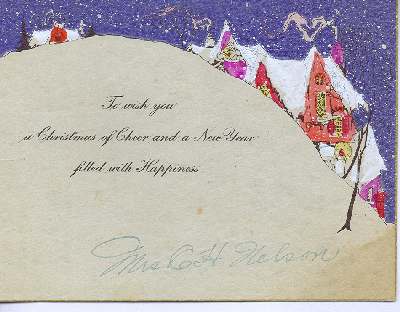 To wish you
a Christmas of Cheer and a New Year
filled with Happiness
Mrs C H Nelson